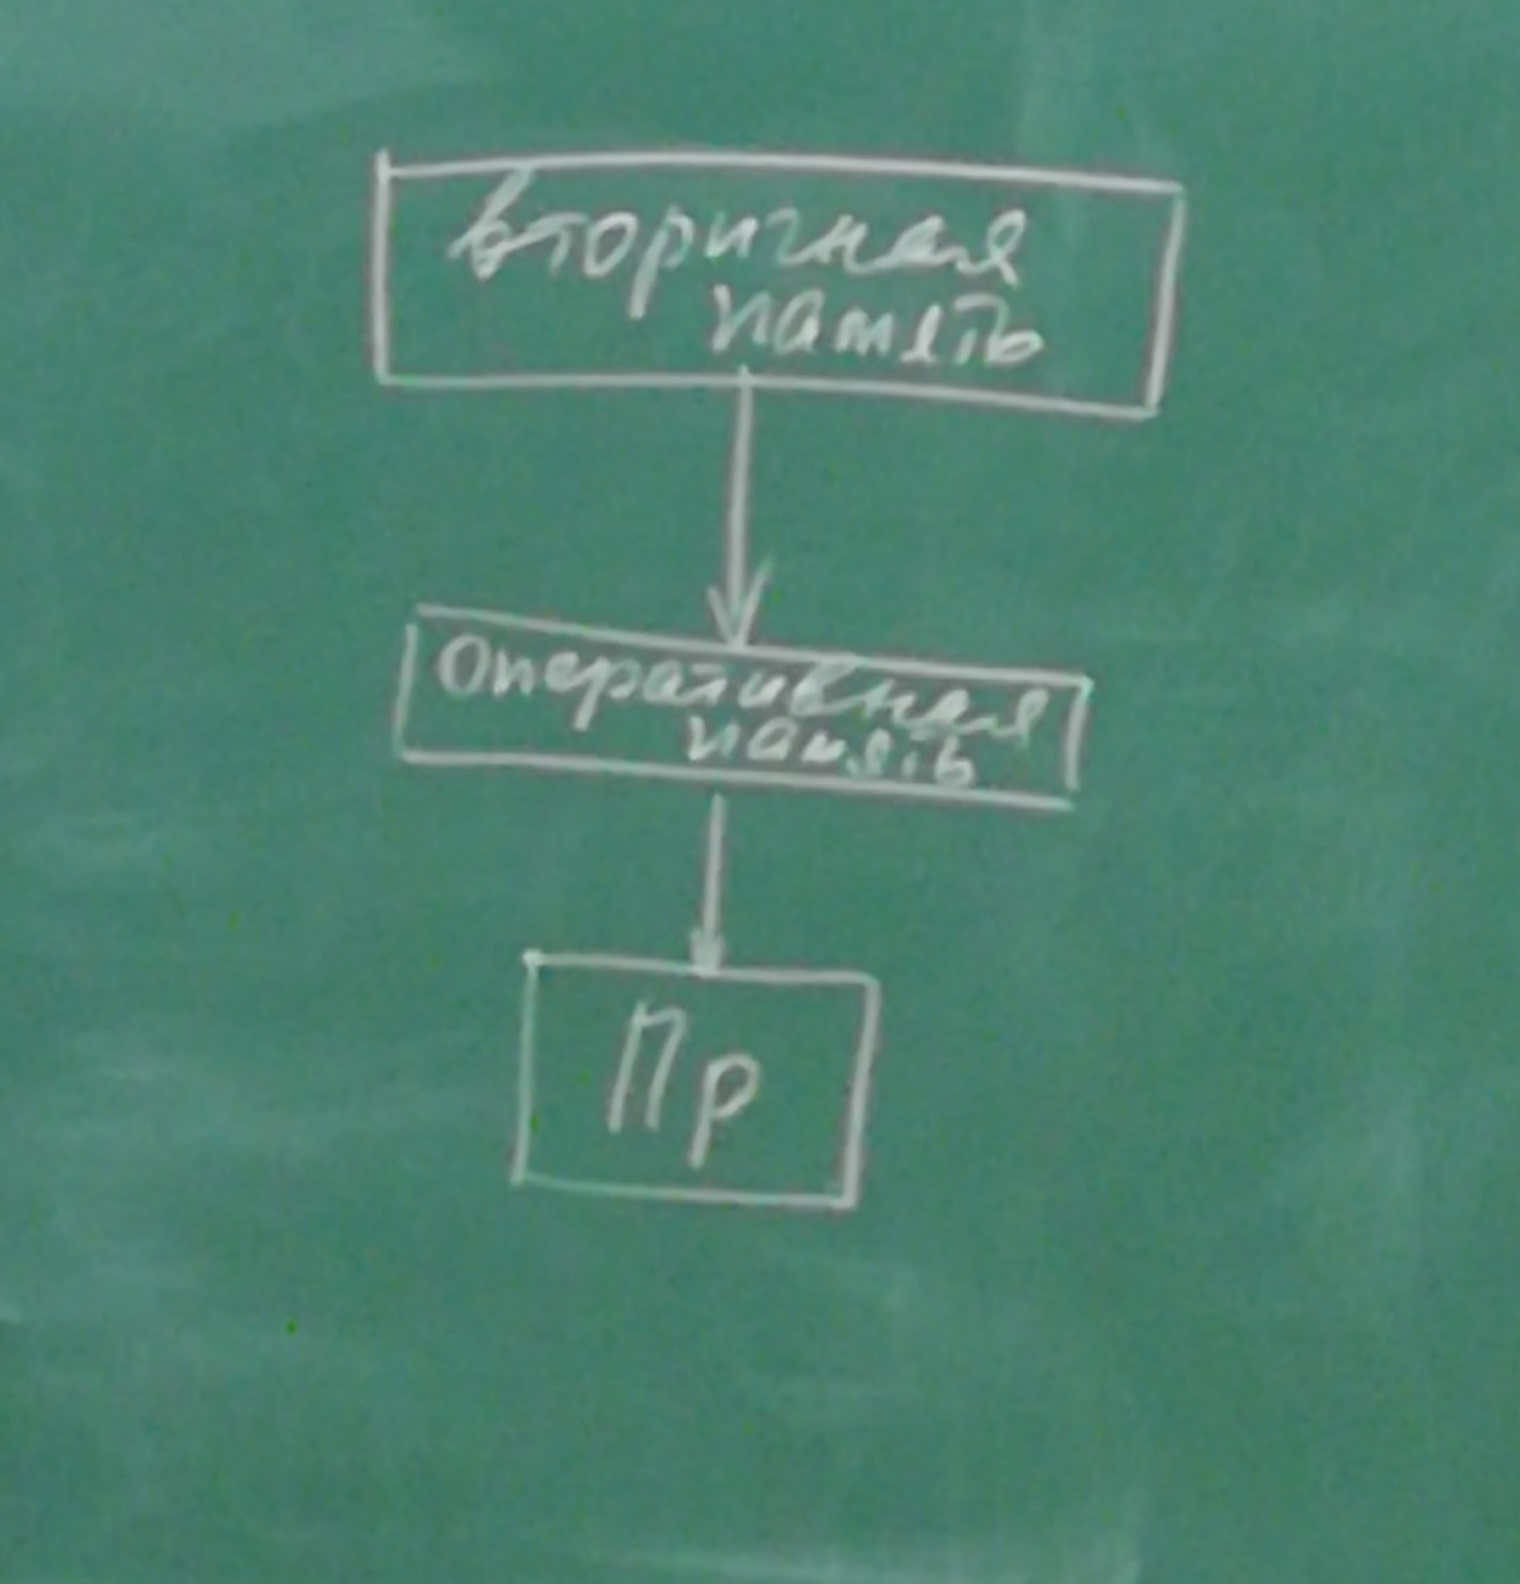 вторичная
память
Оперативная
память
Пр